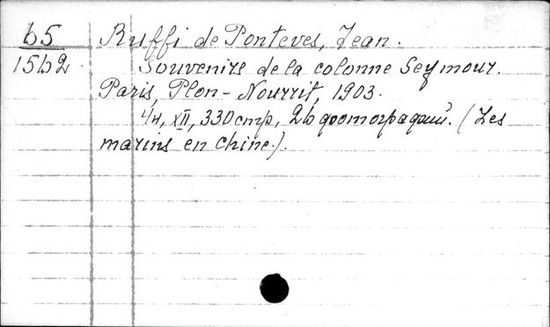 b5
1562
Ruffi de Ponteves, Jean.
Souvenirs de la colonne Seymour.
Paris, Plon-Nourrit, 1903.
XII, 330 стр., 26 фотограф. (Les
marins en Chine.).